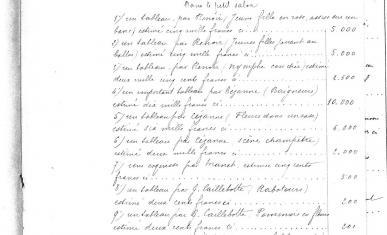 Dans le petit salon
1°/ un tableau, par Renoir, (Jeune fille en rose, assise sur un
banc) estimé cinq mille francs ci 5 000
2°/ un tableau par Renoir (Jeunes filles jouant au
) estimé cinq mille francs ci 5.000
3°/ un tableau par Renoir, nymphe couchée, estimé
deux mille cinq cents francs ci 2.500
4°/ un important tableau par Cézanne (Baigneurs)
estimé dix mille francs ci 10.000
5°/ un tableau par Cézanne (Fleurs dans un vase)
estimé six mille francs ci 6.000
6°/ un tableau par Cézanne scène champêtre,
estimé deux mille francs ci 2.000
7°/ une esquisse par estimée cinq cents
francs ci 500
8°/ un tableau par G. Caillebotte, Raboteurs)
estimé deux cents francs ci 200
9°/ un tableau par G. Caillebotte Pommiers en fleurs
estimé deux cents francs ci